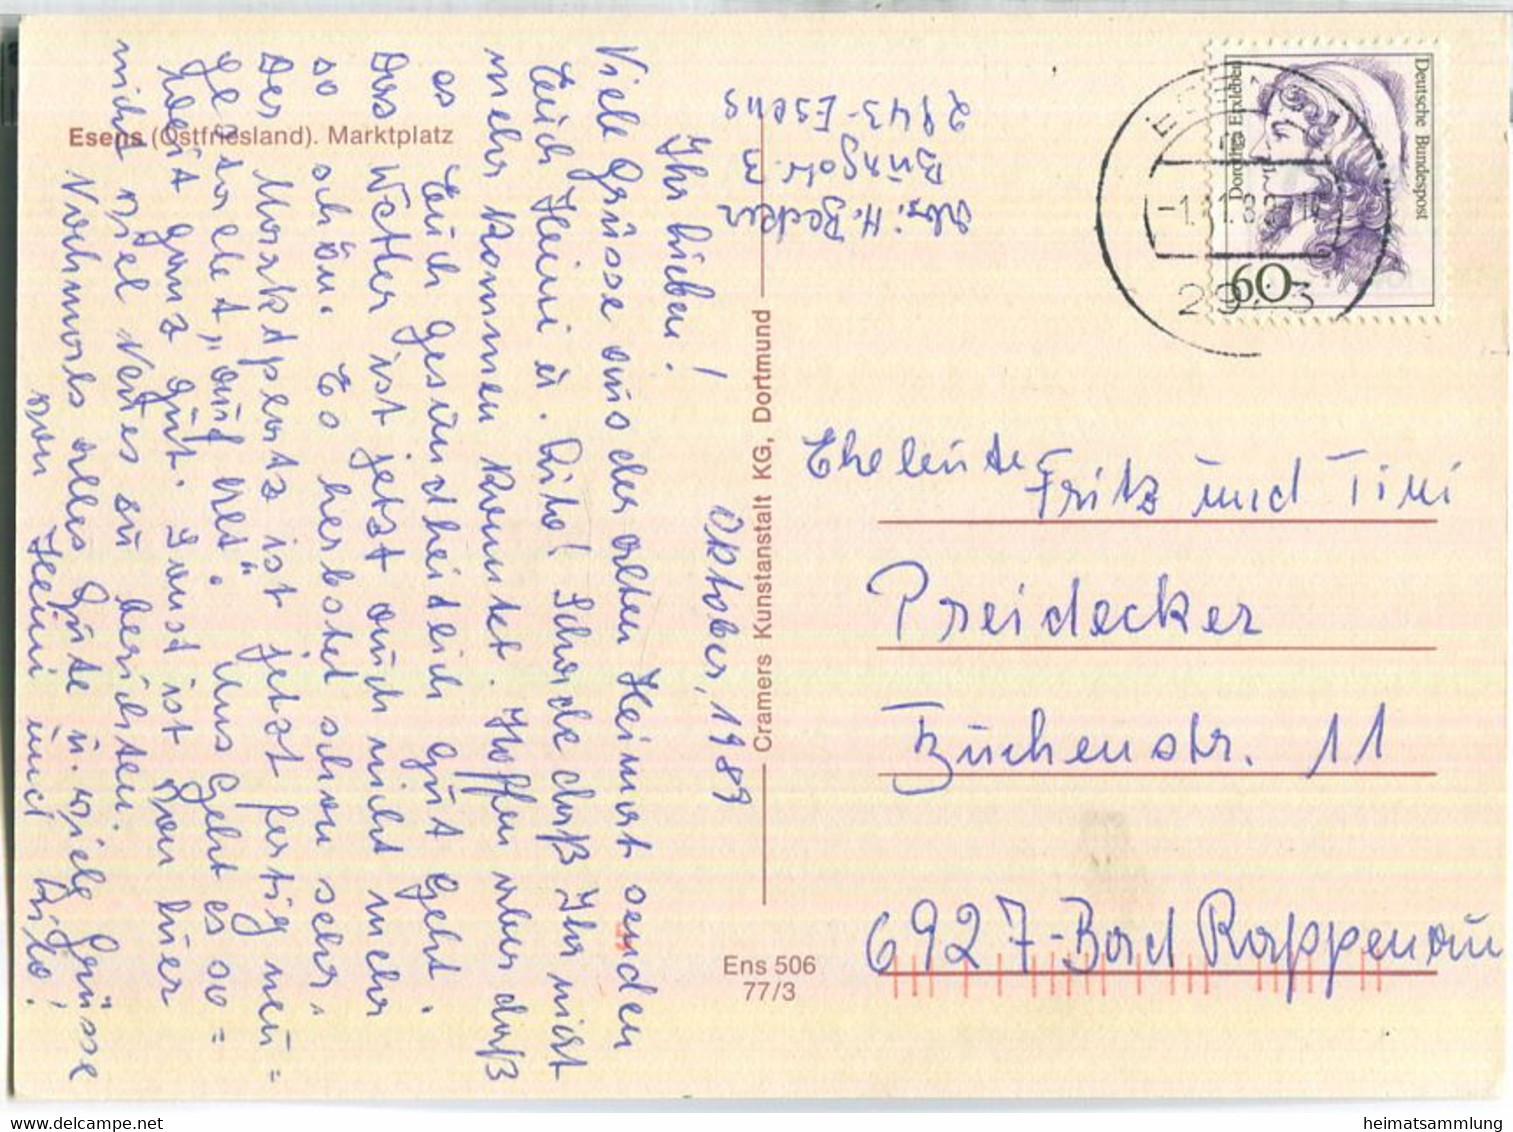 Esens (Ostfriesland). Marktplatz
Oktober, 1989
Ihr Lieben!
Viele Grüsse aus der alten Heimat senden
Euch Heini u. Rita! Schade daß Ihr nicht
mehr kommen konntet. Hoffen aber daß
es Euch gesundheitlich gut geht.
Das Wetter ist jetzt auch nicht mehr
so schön. Es herbstet schon sehr.
Der Marktpl­atz ist jetzt fertig neu=
gestaltet „auf alt“. Uns geht es so=
weit ganz gut. Sonst ist von hier
nicht viel Neues zu berichten.
Nochmals alles Gute u. viele Grüsse
von Heini und Rita!
Abs: H. Becker
2943-Esens
Cramers Kunstanstalt KG, Dortmund
Ens 506
77/3
Deutsche Bundespost
Dorothea Erxleben
60
2943
Eheleute
Fritz und Tini
Preidecker
Buchenstr. 11
6927-Bad Rappenau
heimatsammlung
delcampe.net